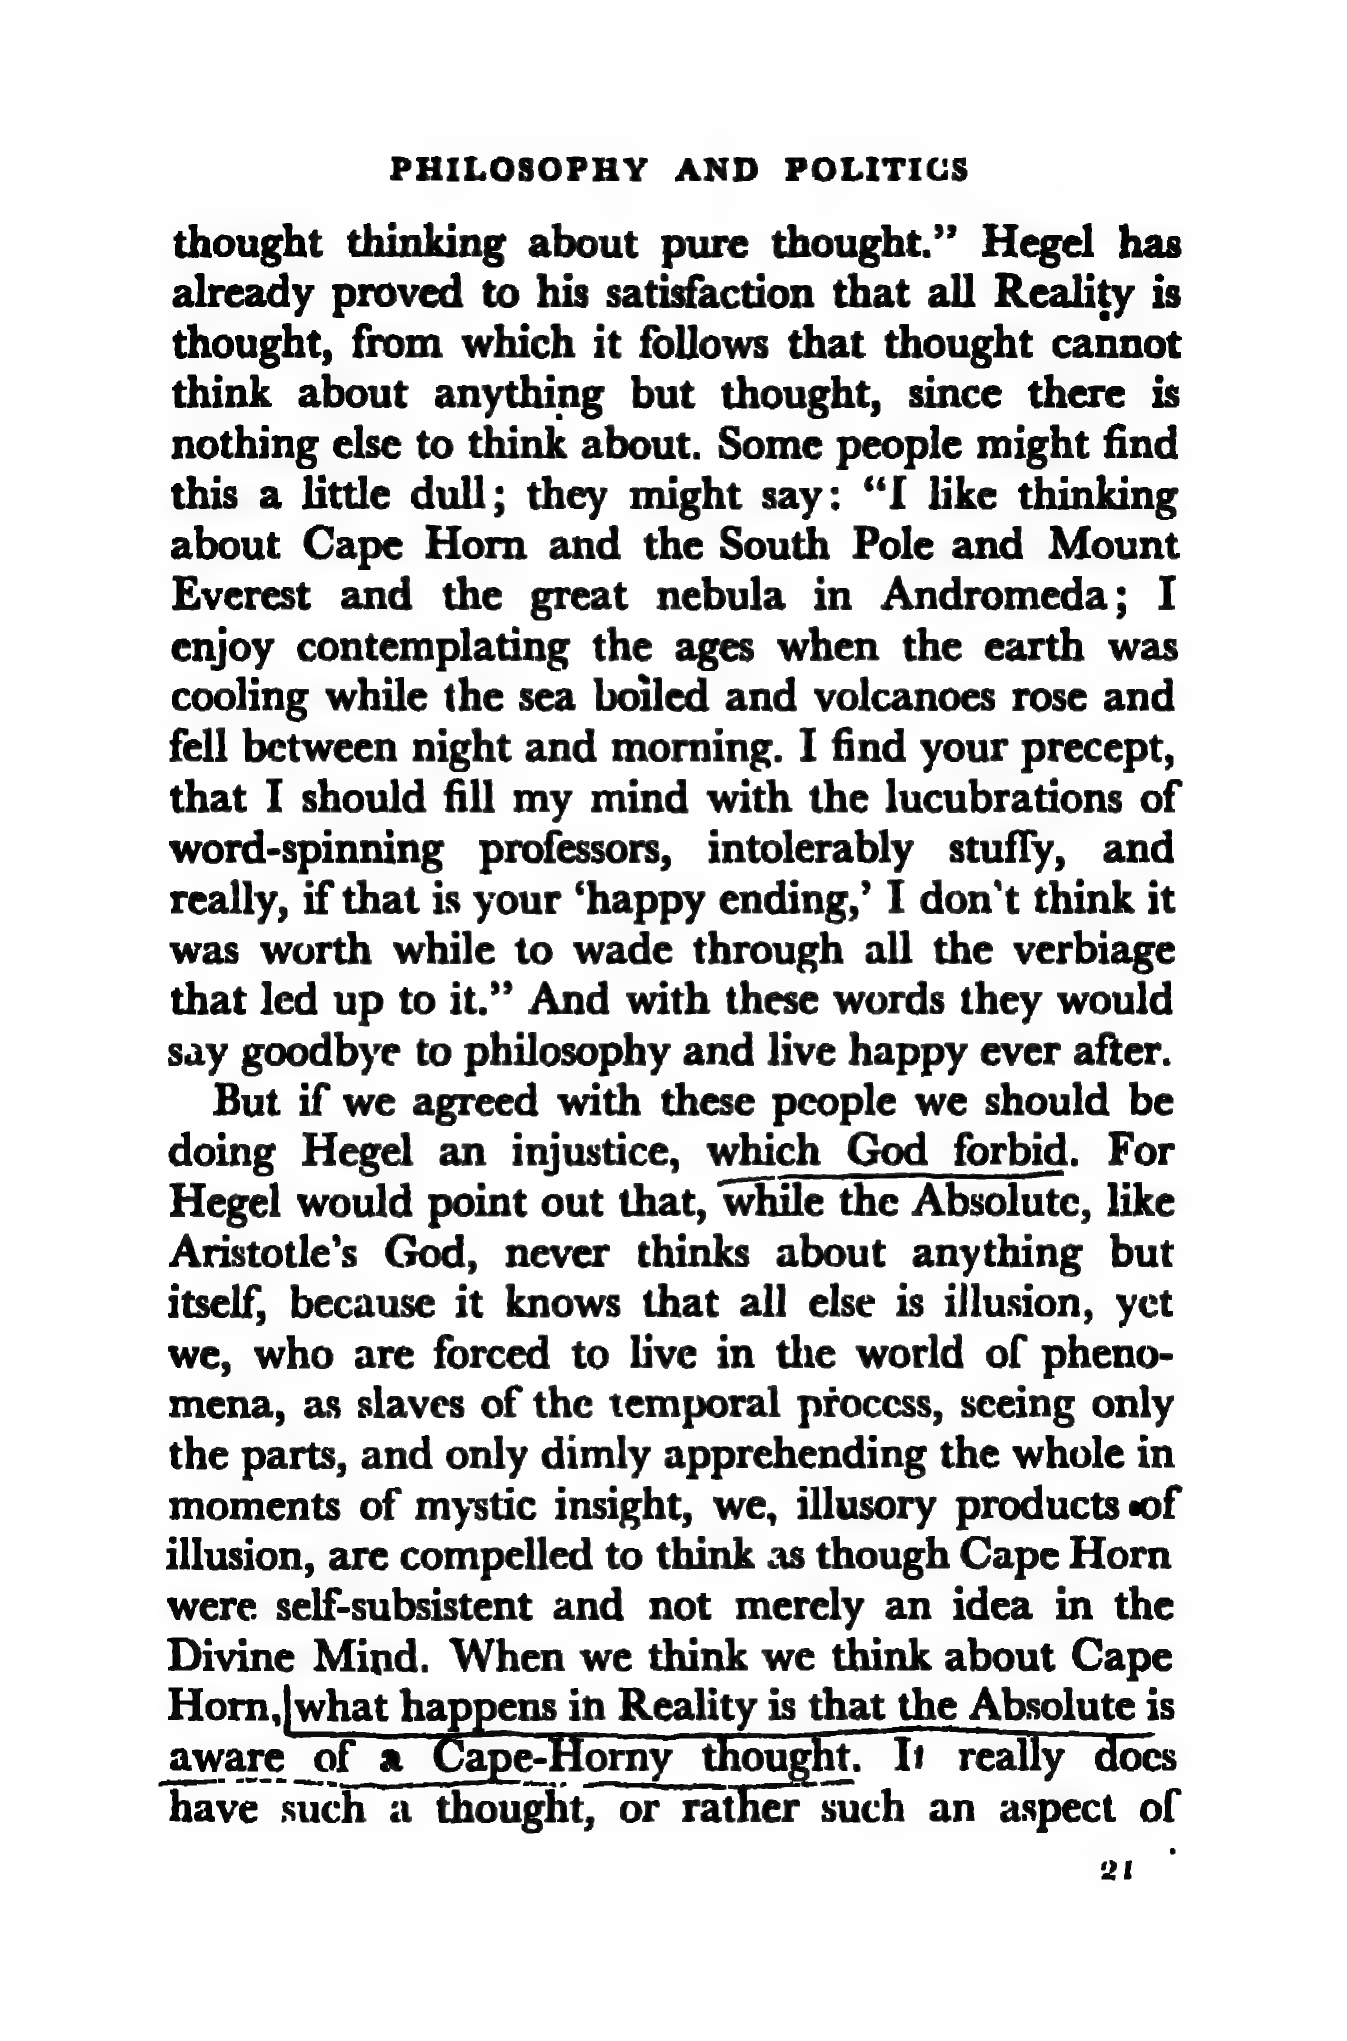 PHILOSOPHY AND POLITICS
thought thinking about pure thought.” Hegel has
already proved to his satisfaction that all Reality is
thought, from which it follows that thought cannot
think about anything but thought, since there is
nothing else to think about. Some people might find
this a little dull; they might say: “I like thinking
about Cape Horn and the South Pole and Mount
Everest and the great nebula in Andromeda; I
enjoy contemplating the ages when the earth was
cooling while the sea boiled and volcanoes rose and
fell between night and morning. I find your precept,
that I should fill my mind with the lucubrations of
word-spinning professors, intolerably stuffy, and
really, if that is your ‘happy ending,’ I don't think it
was worth while to wade through all the verbiage
that led up to it.” And with these words they would
say goodbye to philosophy and live happy ever after.
But if we agreed with these people we should be
doing Hegel an injustice, which God forbid. For
Hegel would point out that, while the Absolute, like
Aristotle’s God, never thinks about anything but
itself, because it knows that all else is illusion, yet
we, who are forced to live in the world of pheno-
mena, as slaves of the temporal process, seeing only
the parts, and only dimly apprehending the whole in
moments of mystic insight, we, illusory products of
illusion, are compelled to think as though Cape Horn
were self-subsistent and not merely an idea in the
Divine Mind. When we think we think about Cape
Horn, what happens in Reality is that the Absolute is
aware of a Cape-Horny thought. It really does
have such a thought, or rather such an aspect of
21